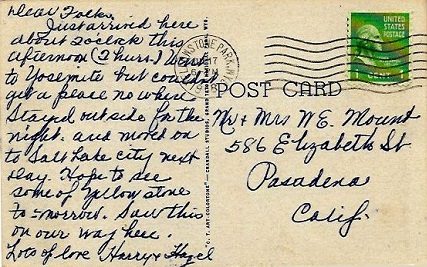 Dear Folks,
Just arrived here
about 2 oclock this
afternoon (2 hurs.) Went
to Yosemite but could
get a place no where
Stayed outside for the
night. and moved on
to Salt Lake City next
day. Hope to see
some of Yellowstone
to-morrow. Saw this
on our way here.
Lots of love Harry + Hazel
"C. T. ART COLORTONE" — CRANDALL STUDIOS,
UNITED
STATES
POSTAGE
1 CENT 1
POST CARD
Mr + Mrs W E. Mount
586 Elizabeth St
Pasadena
Calif.